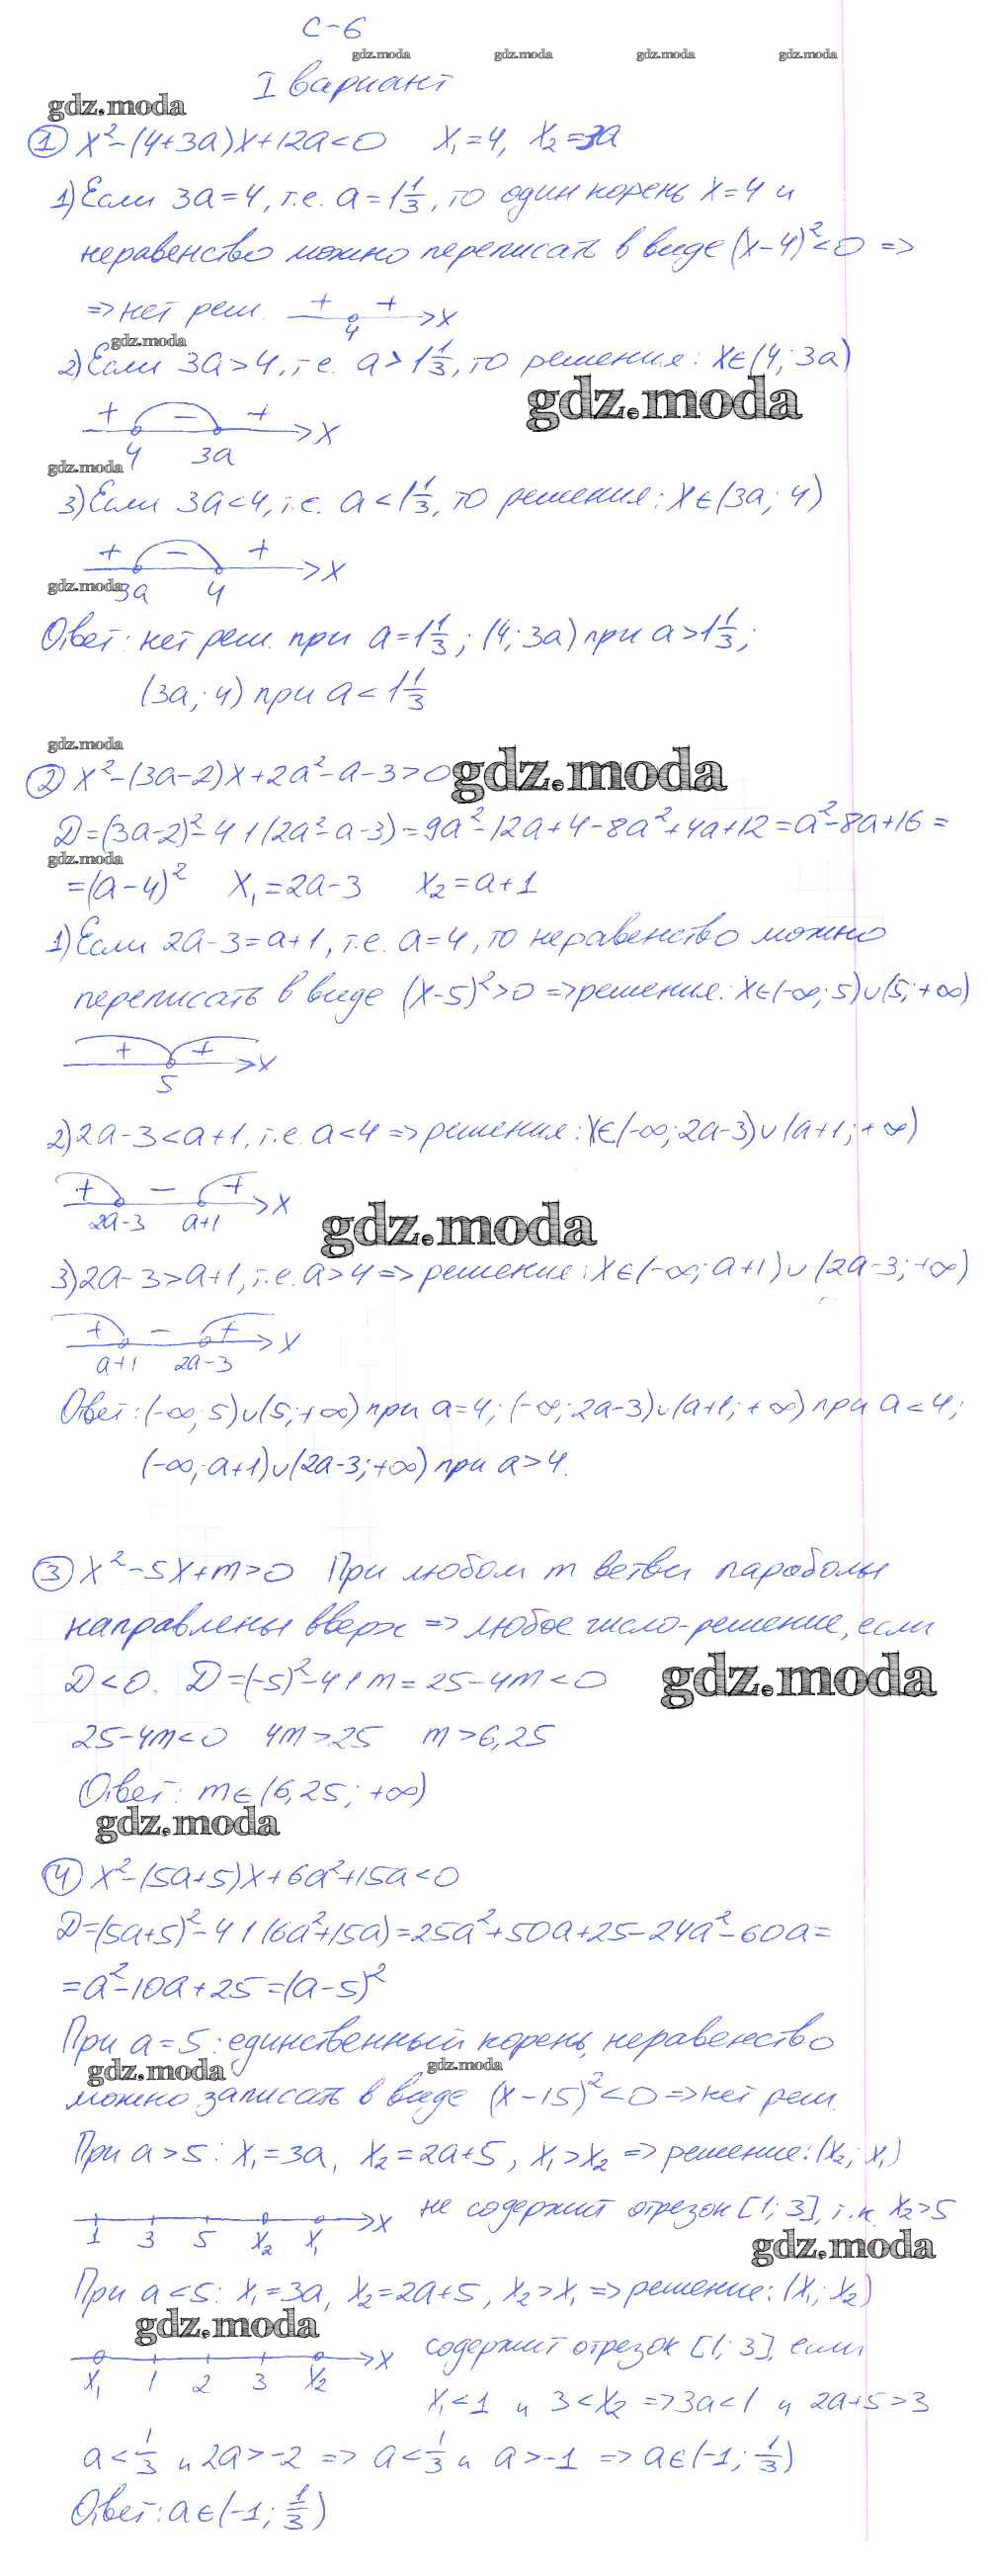 С-6
gdz.moda gdz.moda gdz.moda gdz.moda
I вариант
gdz.moda
① x²-(4+3a)x+12a<0 x₁=4, x₂=3a
1) Если 3a=4, т.е. a=1 1/3, то один корень x=4 и
неравенство можно переписать в виде (x-4)²<0 =>
=> нет реш. + + x
4
gdz.moda
2) Если 3a>4, т.е. a>1 1/3, то решения: x∈(4; 3a)
gdz.moda
+ - + x
4 3a
gdz.moda
3) Если 3a<4, т.е. a<1 1/3, то решения: x∈(3a; 4)
+ - + x
gdz.moda
3a 4
Ответ: нет реш. при a=1 1/3; (4; 3a) при a>1 1/3;
(3a; 4) при a<1 1/3
gdz.moda
② x²-(3a-2)x+2a²-a-3>0
gdz.moda
D=(3a-2)²-4·1·(2a²-a-3)=9a²-12a+4-8a²+4a+12=a²-8a+16=
gdz.moda
=(a-4)² x₁=2a-3 x₂=a+1
1) Если 2a-3=a+1, т.е. a=4, то неравенство можно
переписать в виде (x-5)²>0 => решения: x∈(-∞; 5)∪(5; +∞)
+ + x
5
2) 2a-3<a+1, т.е. a<4 => решения: x∈(-∞; 2a-3)∪(a+1; +∞)
+ - + x
2a-3 a+1
gdz.moda
3) 2a-3>a+1, т.е. a>4 => решения: x∈(-∞; a+1)∪(2a-3; +∞)
+ - + x
a+1 2a-3
Ответ: (-∞; 5)∪(5; +∞) при a=4; (-∞; 2a-3)∪(a+1; +∞) при a<4;
(-∞; a+1)∪(2a-3; +∞) при a>4.
③ x²-5x+m>0 При любом m ветви параболы
направлены вверх => любое число-решение, если
D<0. D=(-5)²-4·1·m=25-4m<0
gdz.moda
25-4m<0 4m>25 m>6,25
Ответ: m∈(6,25; +∞)
gdz.moda
④ x²-(5a+5)x+6a²+15a<0
D=(5a+5)²-4·1·(6a²+15a)=25a²+50a+25-24a²-60a=
=a²-10a+25=(a-5)²
При a=5: единственный корень, неравенство
gdz.moda gdz.moda
можно записать в виде (x-15)²<0 => нет реш.
При a>5: x₁=3a, x₂=2a+5, x₁>x₂ => решение: (x₂; x₁)
1 3 5 x₂ x₁ x не содержит отрезок [1; 3], т.к. x₂>5
gdz.moda
При a<5: x₁=3a, x₂=2a+5, x₂>x₁ => решение: (x₁; x₂)
gdz.moda
x₁ 1 2 3 x₂ x содержит отрезок [1; 3], если
x₁<1 и 3<x₂ => 3a<1 и 2a+5>3
a<1/3 и 2a>-2 => a<1/3 и a>-1 => a∈(-1; 1/3)
Ответ: a∈(-1; 1/3)